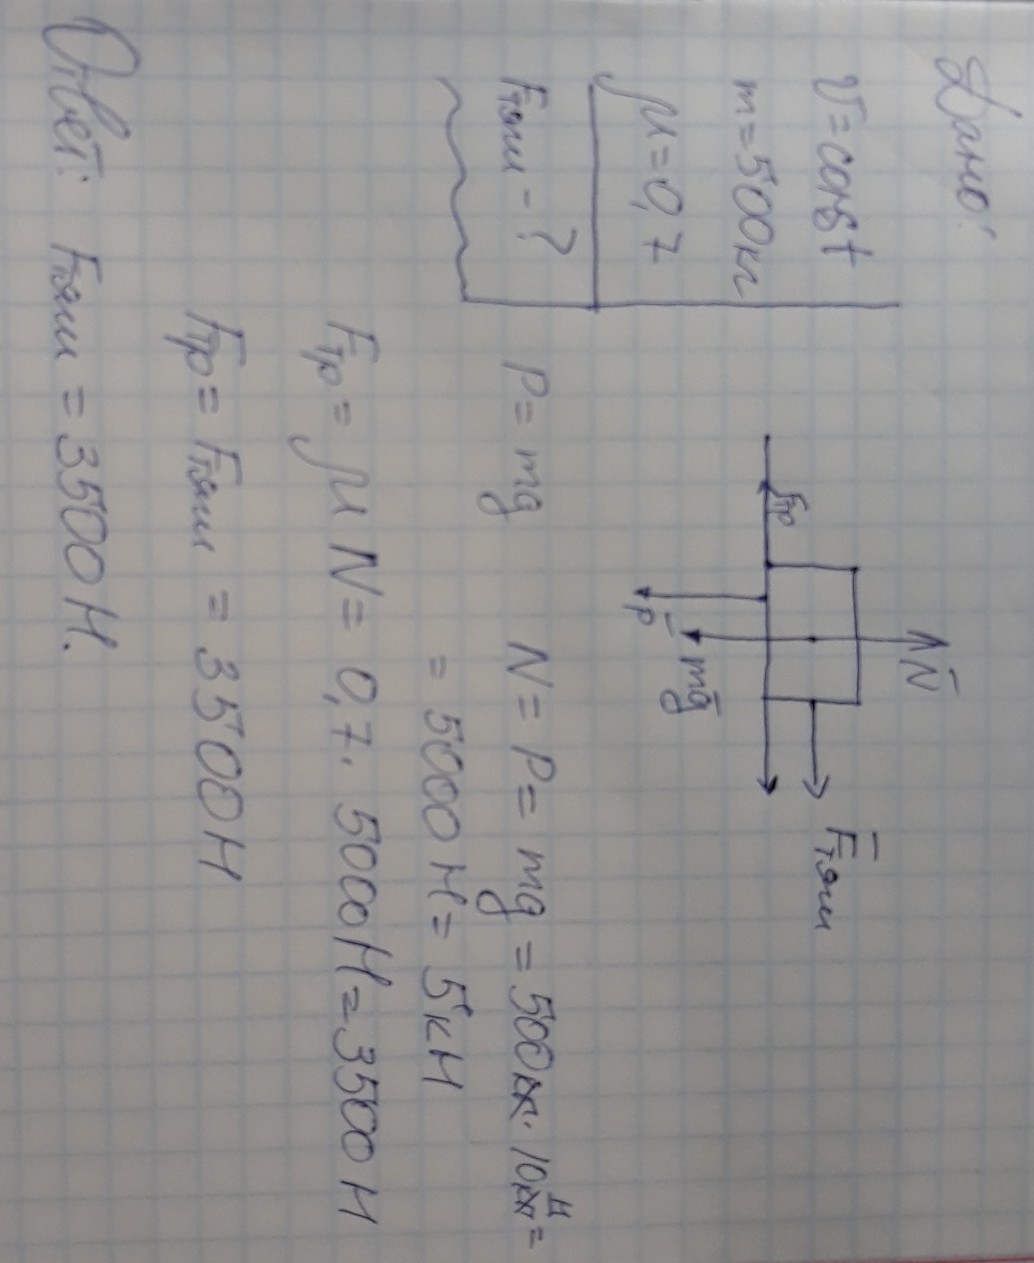 Дано:
V = const
m = 500кг
μ = 0,7
Fтяги - ?
N̄
F̄тяги
Fтр
mḡ
P̄
P = mg N = P = mg = 500кг · 10 Н/кг =
= 5000 Н = 5кН
Fтр = μN = 0,7 · 5000Н = 3500 Н
Fтр = Fтяги = 3500Н
Ответ: Fтяги = 3500Н.